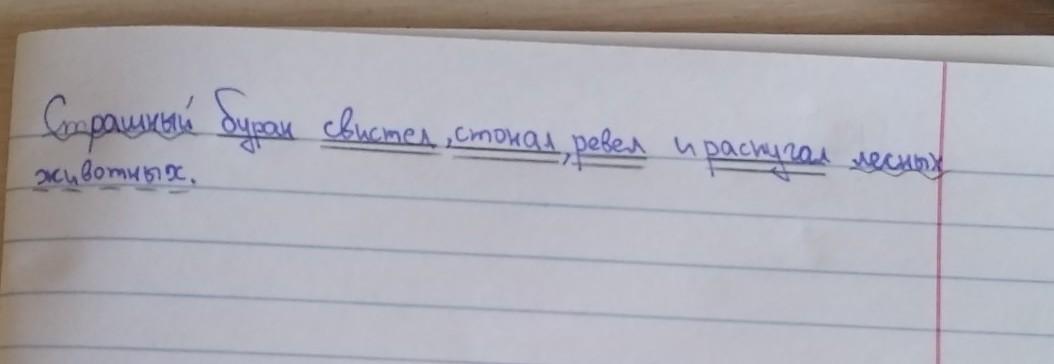 Страшный буран свистел, стонал, ревел и распугал лесных
животных.